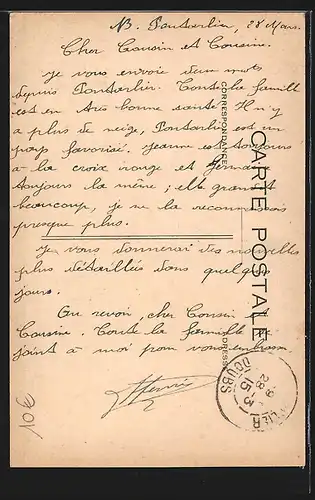 N.B. Pontarlier, 28 Mars.
Cher Cousin et Cousine.
Je vous envoie deux mots
depuis Pontarlier. Toute la famille
est en très bonne santé. Il n'y
a plus de neige, Pontarlier est un
pays favorisé. Jeanne est toujours
à la croix rouge et Germaine
toujours la même ; elle grandit
beaucoup, je ne la reconnaissais
presque plus.
Je vous donnerai des nouvelles
plus détaillées dans quelques
jours.
Au revoir, cher Cousin et
Cousine. Toute la famille se
joint à moi pour vous embrasser
CARTE POSTALE
CORRESPONDANCE
ADRESSE
DOUBS
10€